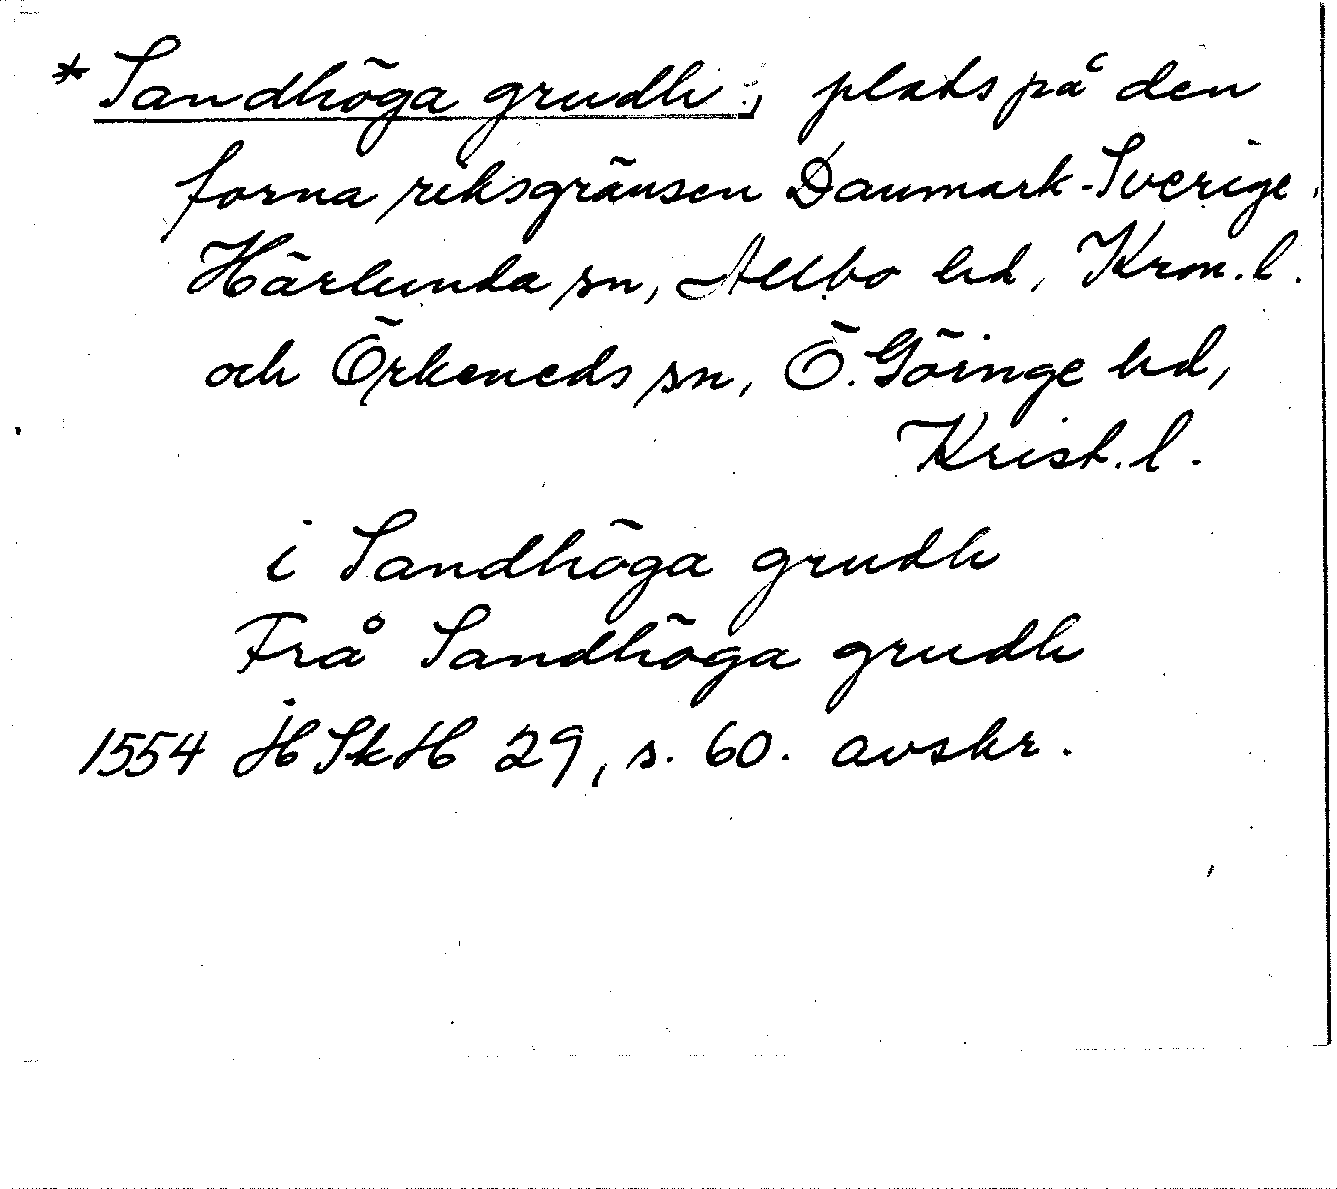 * Sandhöga grudh, plats på den
forna riksgränsen Danmark-Sverige,
Härlunda sn, Allbo hd, Kron. l.
och Örkeneds sn, Ö. Göinge hd,
Krist. l.
i Sandhöga grudh
Frå Sandhöga grudh
1554 HSkH 29, s. 60. avskr.